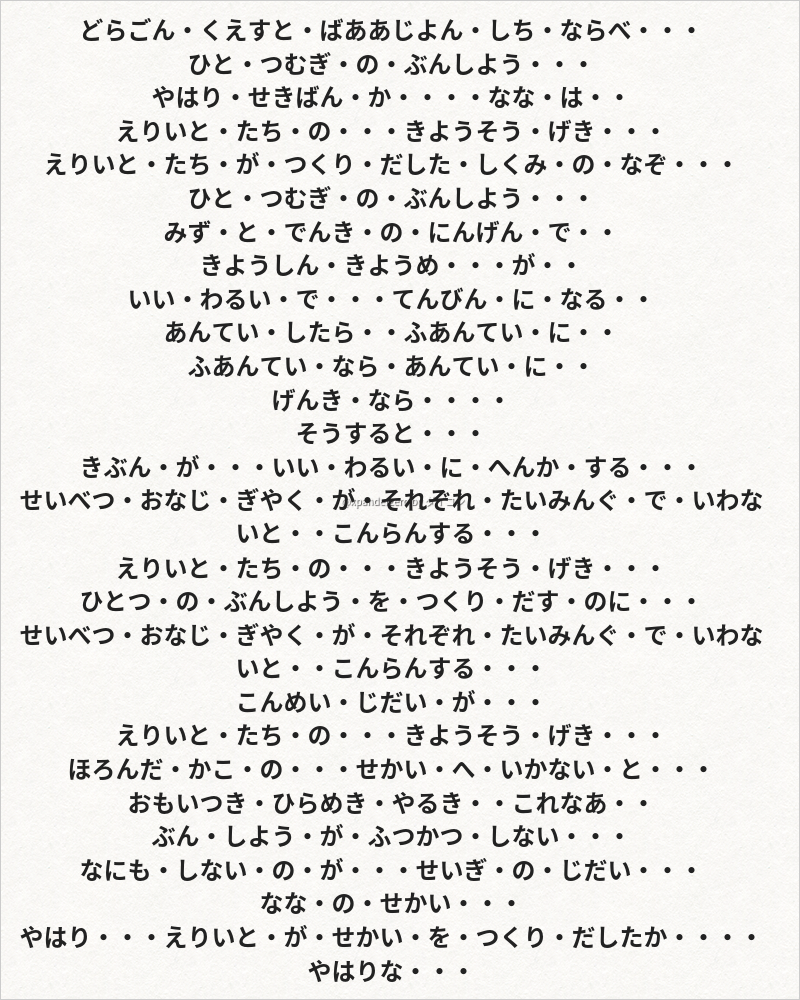 どらごん・くえすと・ばああじよん・しち・ならべ・・・
ひと・つむぎ・の・ぶんしよう・・・
やはり・せきばん・か・・・・なな・は・・
えりいと・たち・の・・・きようそう・げき・・・
えりいと・たち・が・つくり・だした・しくみ・の・なぞ・・・
ひと・つむぎ・の・ぶんしよう・・・
みず・と・でんき・の・にんげん・で・・
きようしん・きようめ・・・が・・
いい・わるい・で・・・てんびん・に・なる・・
あんてい・したら・・ふあんてい・に・・
ふあんてい・なら・あんてい・に・・
げんき・なら・・・・
そうすると・・・
きぶん・が・・・いい・わるい・に・へんか・する・・・
せいべつ・おなじ・ぎやく・が・それぞれ・たいみんぐ・で・いわな
いと・・こんらんする・・・
えりいと・たち・の・・・きようそう・げき・・・
ひとつ・の・ぶんしよう・を・つくり・だす・のに・・・
せいべつ・おなじ・ぎやく・が・それぞれ・たいみんぐ・で・いわな
いと・・こんらんする・・・
こんめい・じだい・が・・・
えりいと・たち・の・・・きようそう・げき・・・
ほろんだ・かこ・の・・・せかい・へ・いかない・と・・・
おもいつき・ひらめき・やるき・・これなあ・・
ぶん・しよう・が・ふつかつ・しない・・・
なにも・しない・の・が・・・せいぎ・の・じだい・・・
なな・の・せかい・・・
やはり・・・えりいと・が・せかい・を・つくり・だしたか・・・・
やはりな・・・